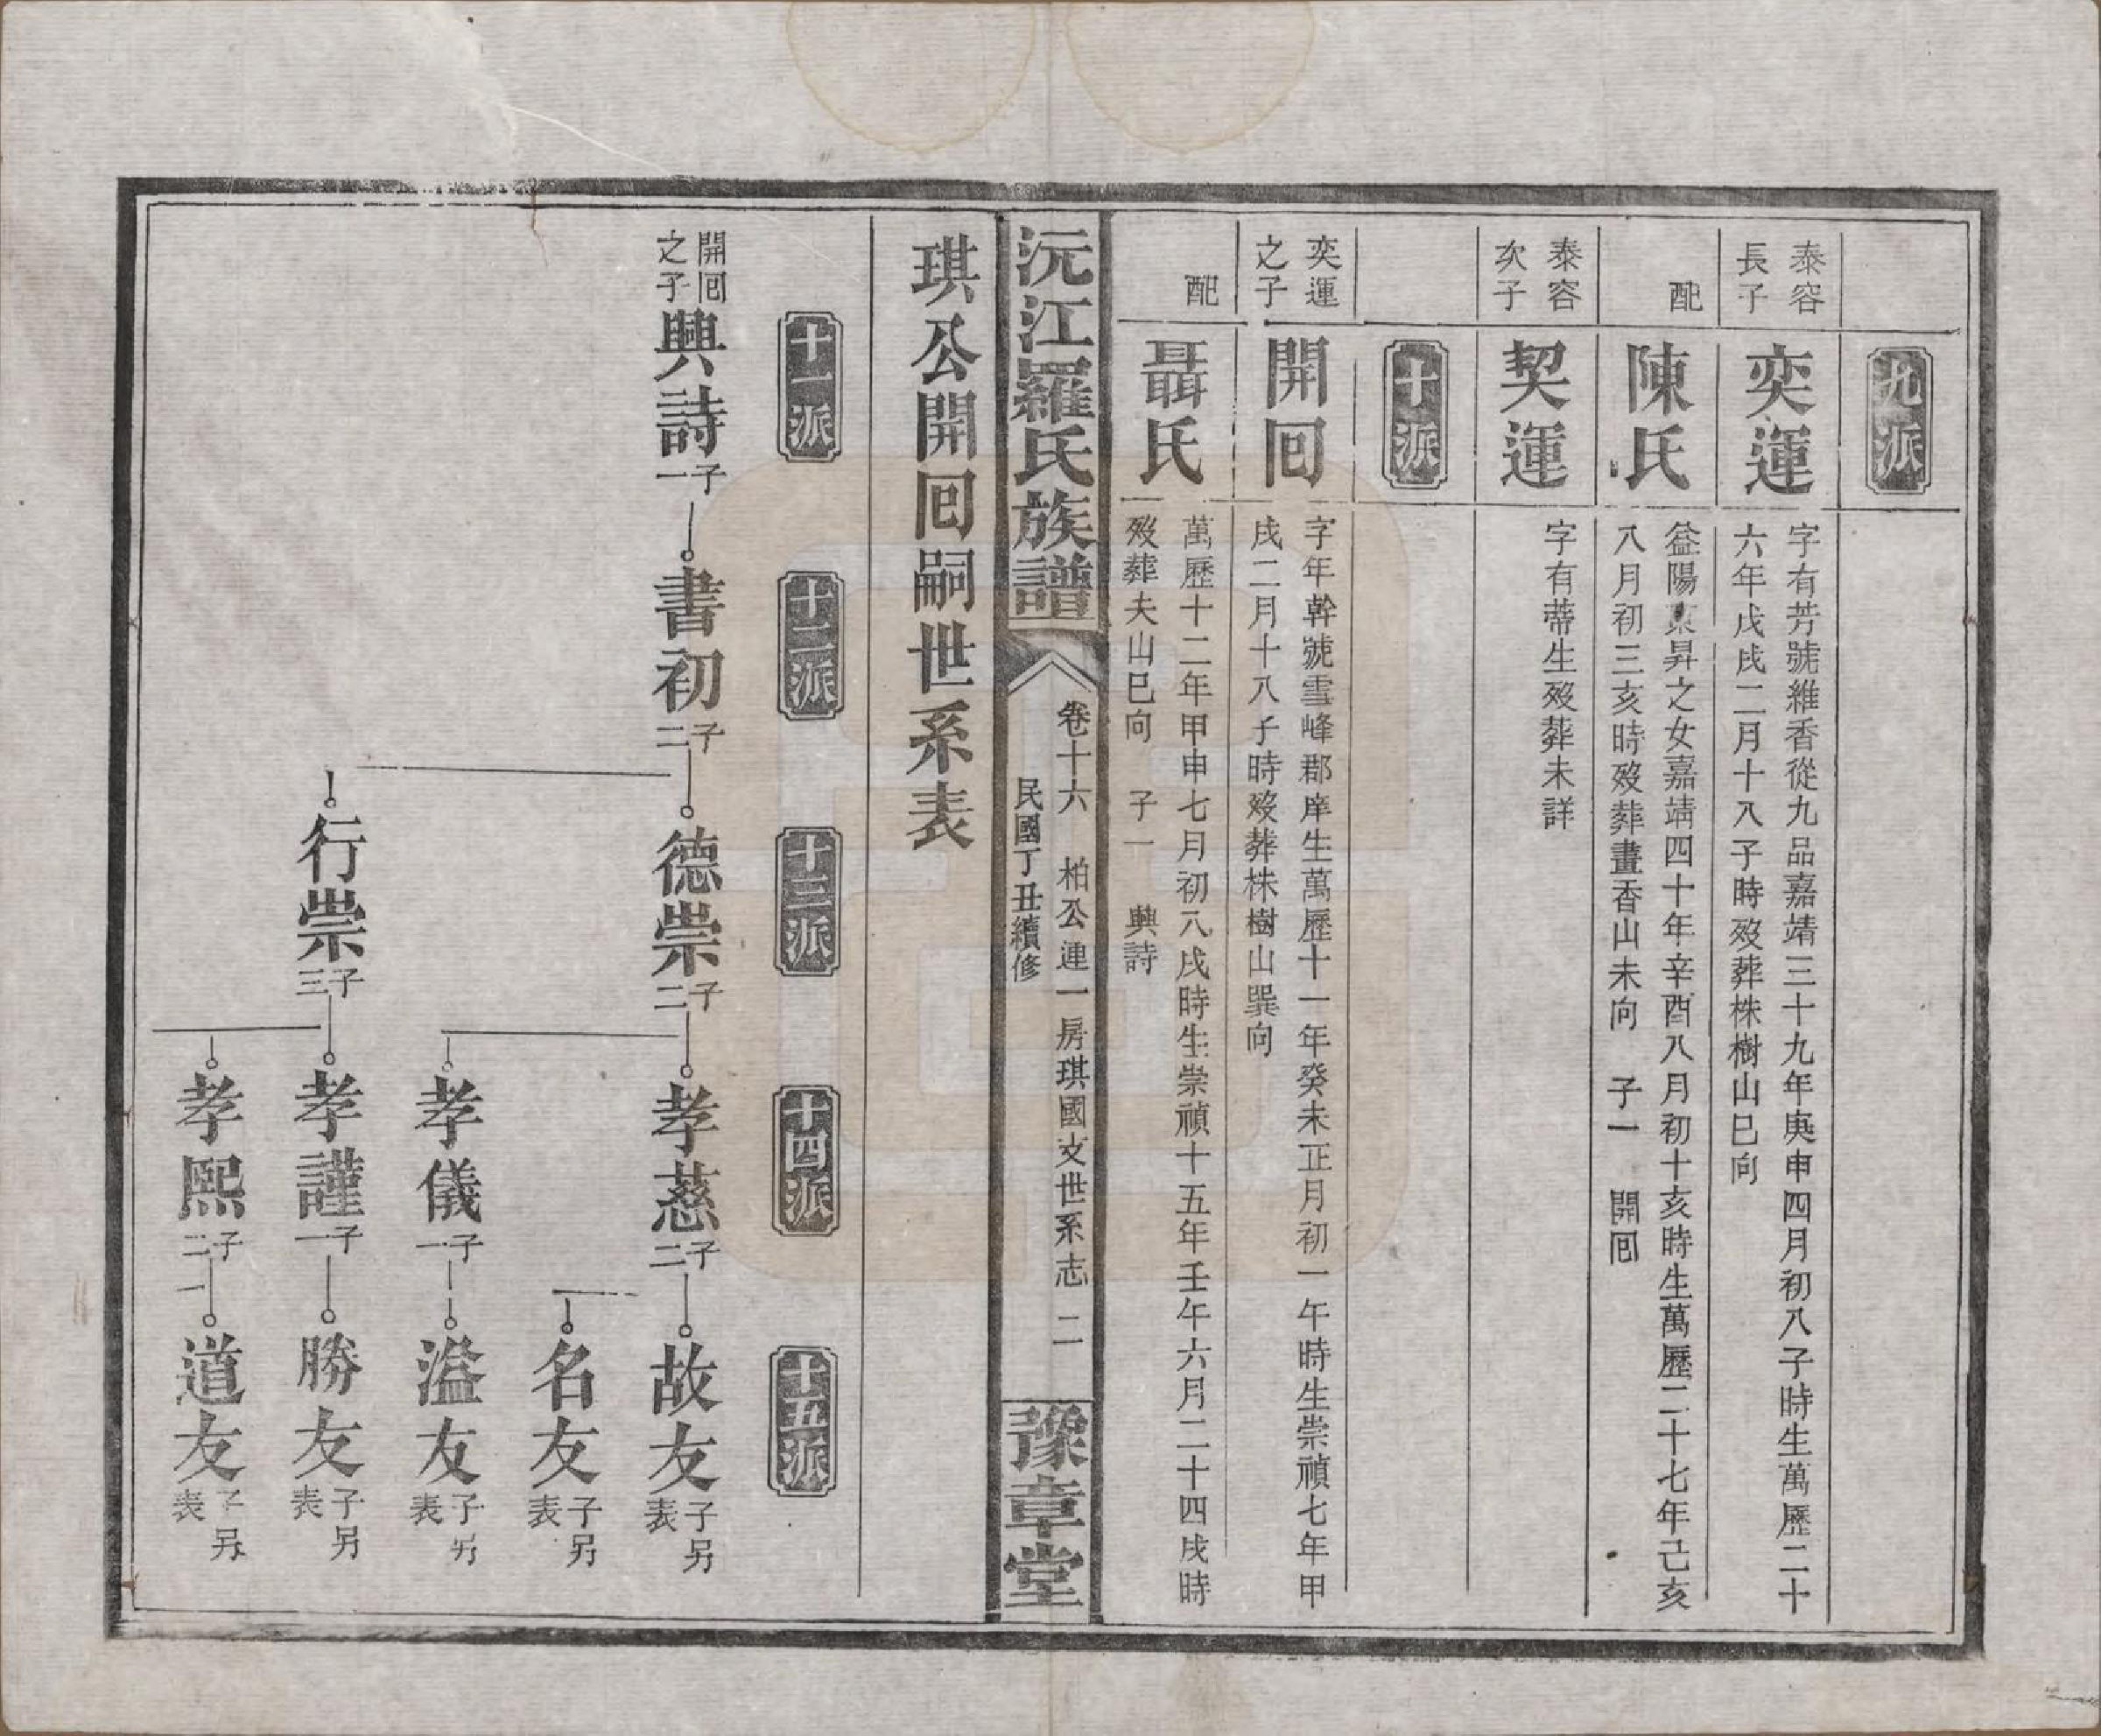 九派
泰容長子
奕運
字有芳號維香從九品嘉靖三十九年庚申四月初八子時生萬歷二十
六年戊戌二月十八子時歿葬株樹山巳向
配
陳氏
益陽東昇之女嘉靖四十年辛酉八月初十亥時生萬歷二十七年己亥
八月初三亥時歿葬畫香山未向 子一 開回
泰容次子
契運
字有蒂生歿葬未詳
十派
奕運之子
開回
字年幹號雪峰郡庠生萬歷十一年癸未正月初一午時生崇禎七年甲
戌二月十八子時歿葬株樹山巽向
配
聶氏
萬歷十二年甲申七月初八戌時生崇禎十五年壬午六月二十四戌時
歿葬夫山巳向 子一 興詩
沅江羅氏族譜
卷十六 柏公連一房琪國文世系志 二
民國丁丑續修
豫章堂
琪公開回嗣世系表
十一派
十二派
十三派
十四派
十五派
開回之子 興詩 子一
書初 子二
德崇 子二
孝慈 子二
故友 子另表
名友 子另表
孝儀 子一
溢友 子另表
行崇 子三
孝謹 子一
勝友 子另表
孝熙 子二
道友 子另表